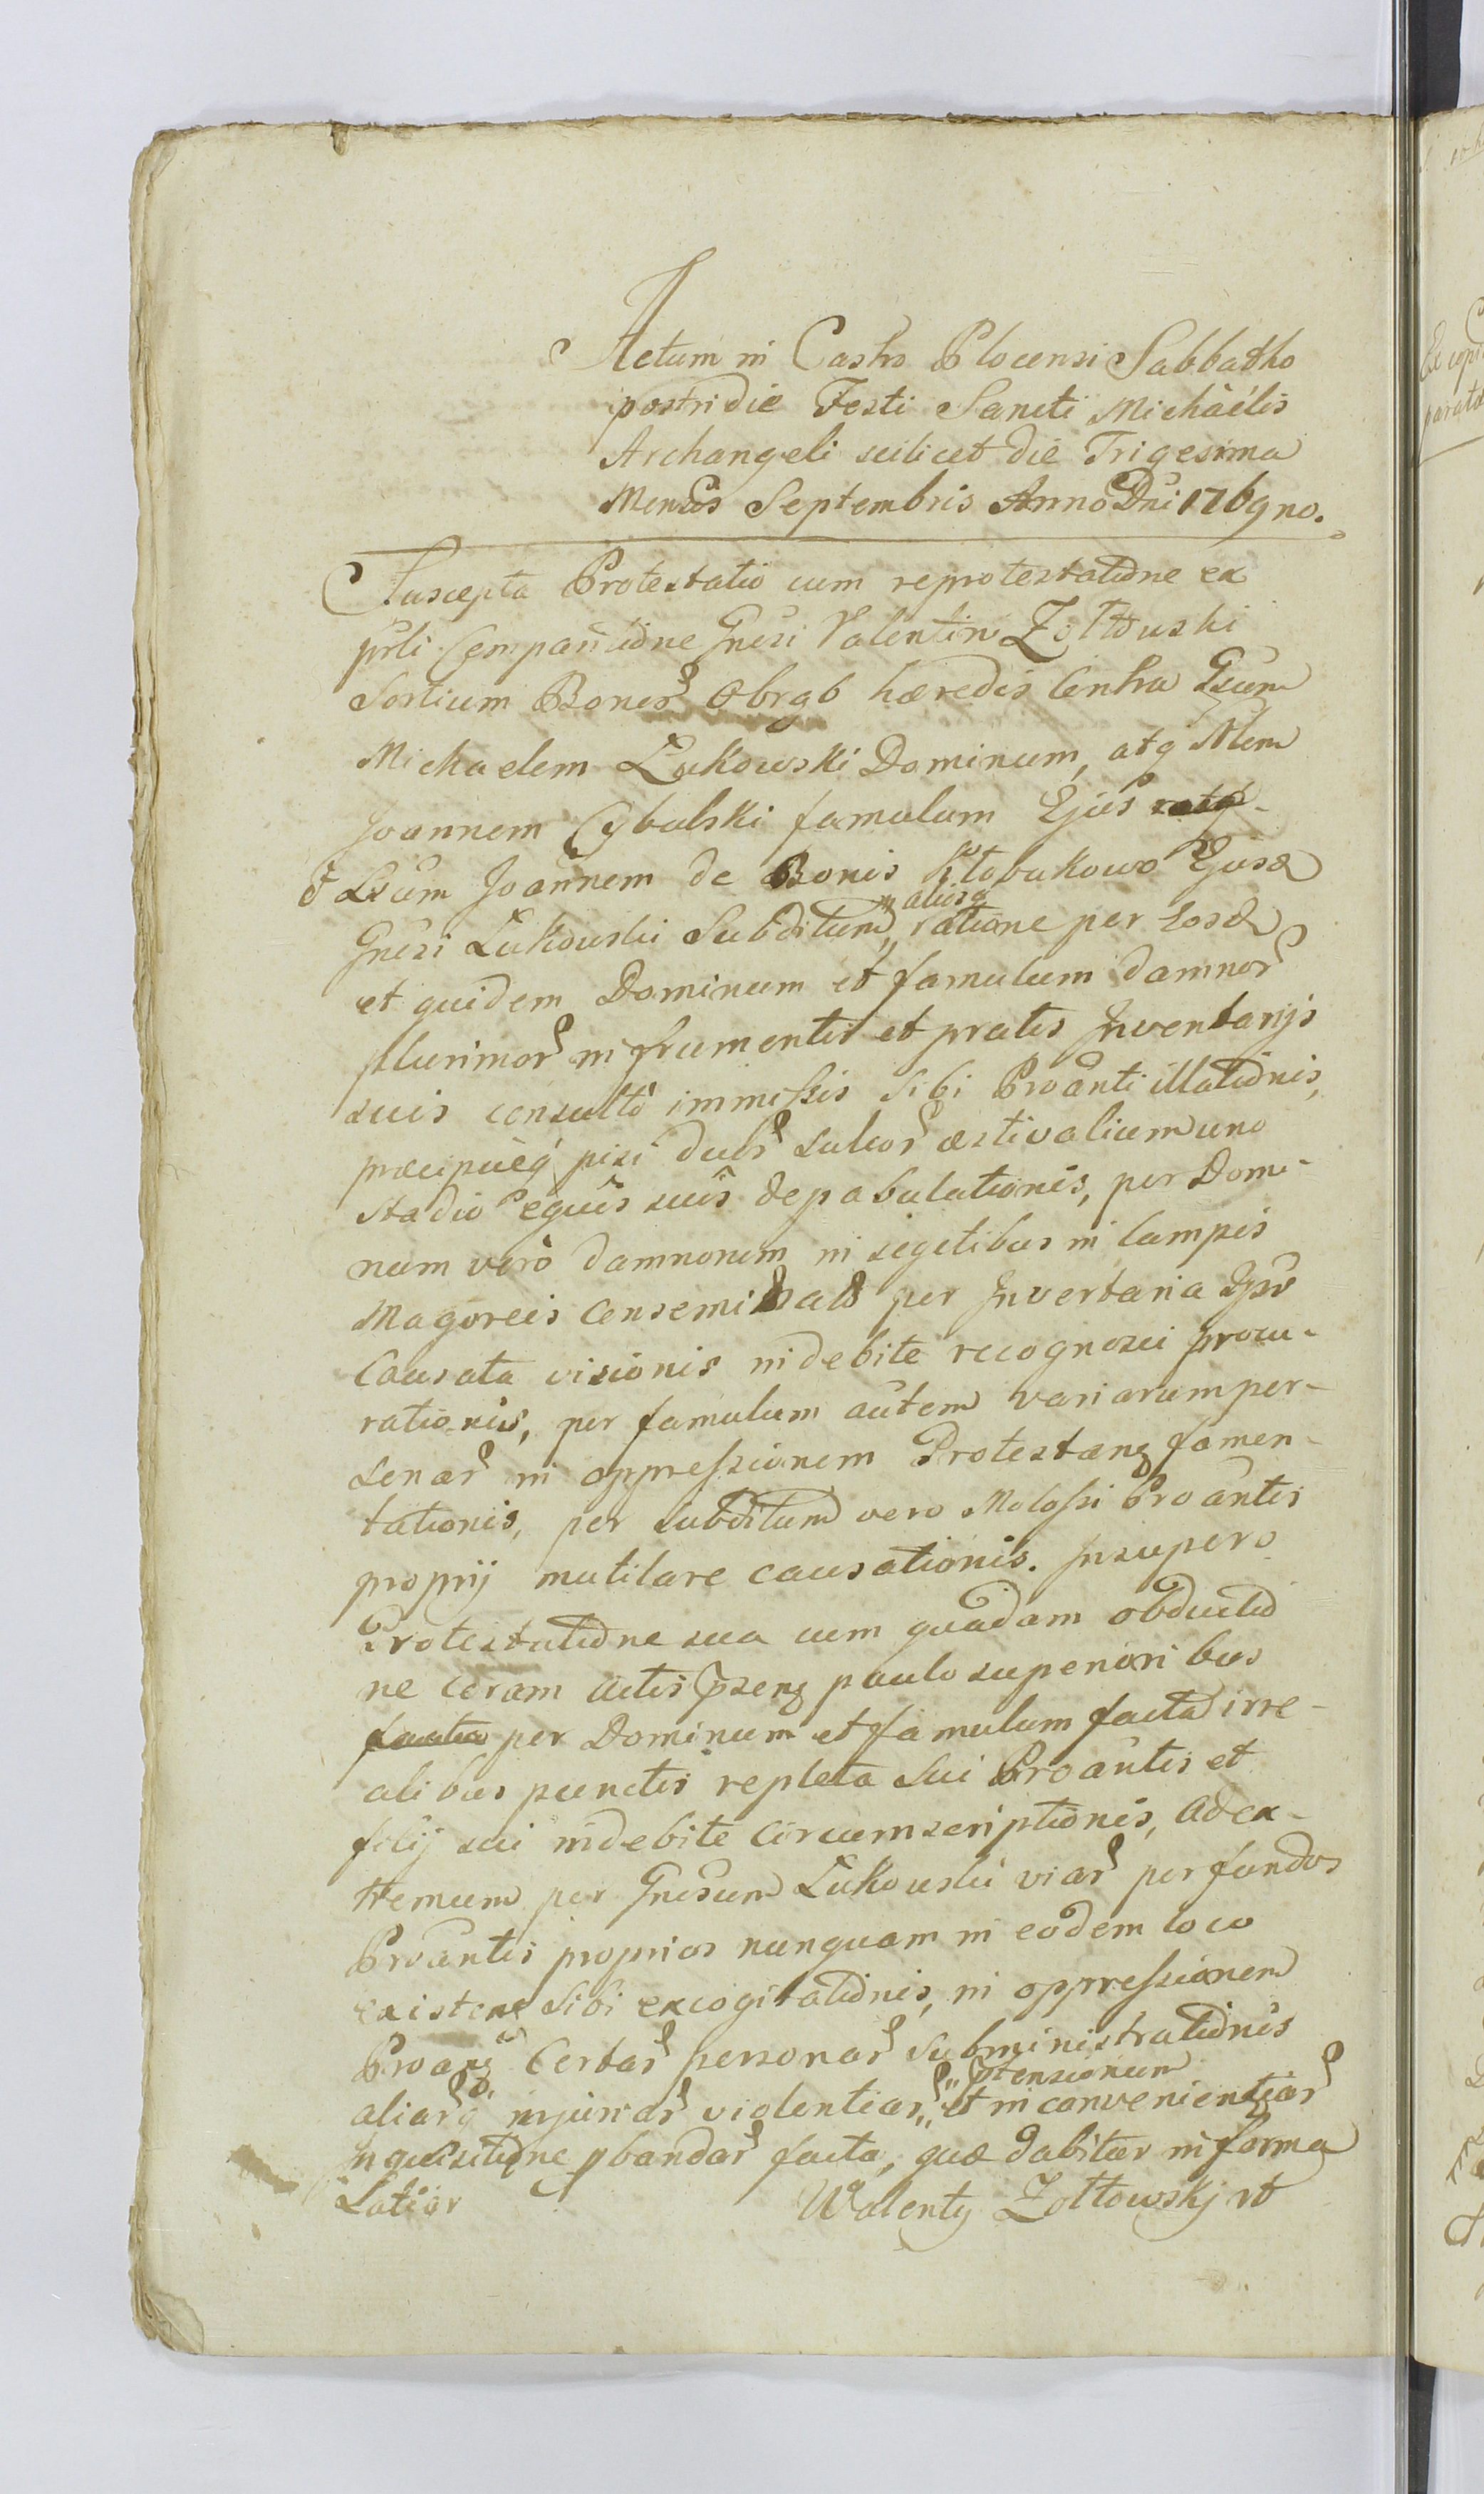 Actum in Castro Plocensi Sabbatho
postridie Festi Sancti Michäelis
Archangeli scilicet die Trigesima
Mensis Septembris Anno Dni 1769no.
Suscepta Protestatio cum reprotestatione ex
prsli Comparitione Gnesi Valentini Zołtowski
Sortium Bonor Obrąb hæredis Contra Gsum
Michaelem Łukowski Dominum, atq Nlem
Joannem Cybulski famulum Ejus
& Lsum Joannem de Bonis Kłobukowo Ejusd
Gnesi Łukowski Subditum "aliosq" ratione per Eosd
et quidem Dominum et famulum damnor
plurimor in frumentis et pratis Inventarijs
suis consultò immissis Sibi Proanti illationis,
præcipuèq pisi duor sulcor æstivalium uno
stadio equis suis depabulationis, per Domi-
num verò damnorum in segetibus in Campis
Magoreis Conseminatis per Inventaria Ipsi
Causata visionis indebite recognosci procu-
rationis, per famulum autem variarum per-
sonar in oppressionem Protestang fomen-
tationis, per subditum vero Molossi Proantis
proprij mutilare causationis. Insuper
Protestatione sua cum quadam obductio
ne coram Actis psseng paulo superioribus
per Dominum et famulum facta irre-
alibus punctis repleta Sui Proantis et
filij sui indebite Circumscriptionis, ad ex-
tremum per Gnesum Łukowski viar per fundos
Proantis proprios nunquam in eodem loco
existen Sibi excogitationis, in oppressionem
Proang Certar personar subministrationis
aliarq injuriar violentiar "ptensionum" et inconvenientiar
Inquisitione pbandar facta, quæ dabitur in forma
Latior Walenty Zołtowskj